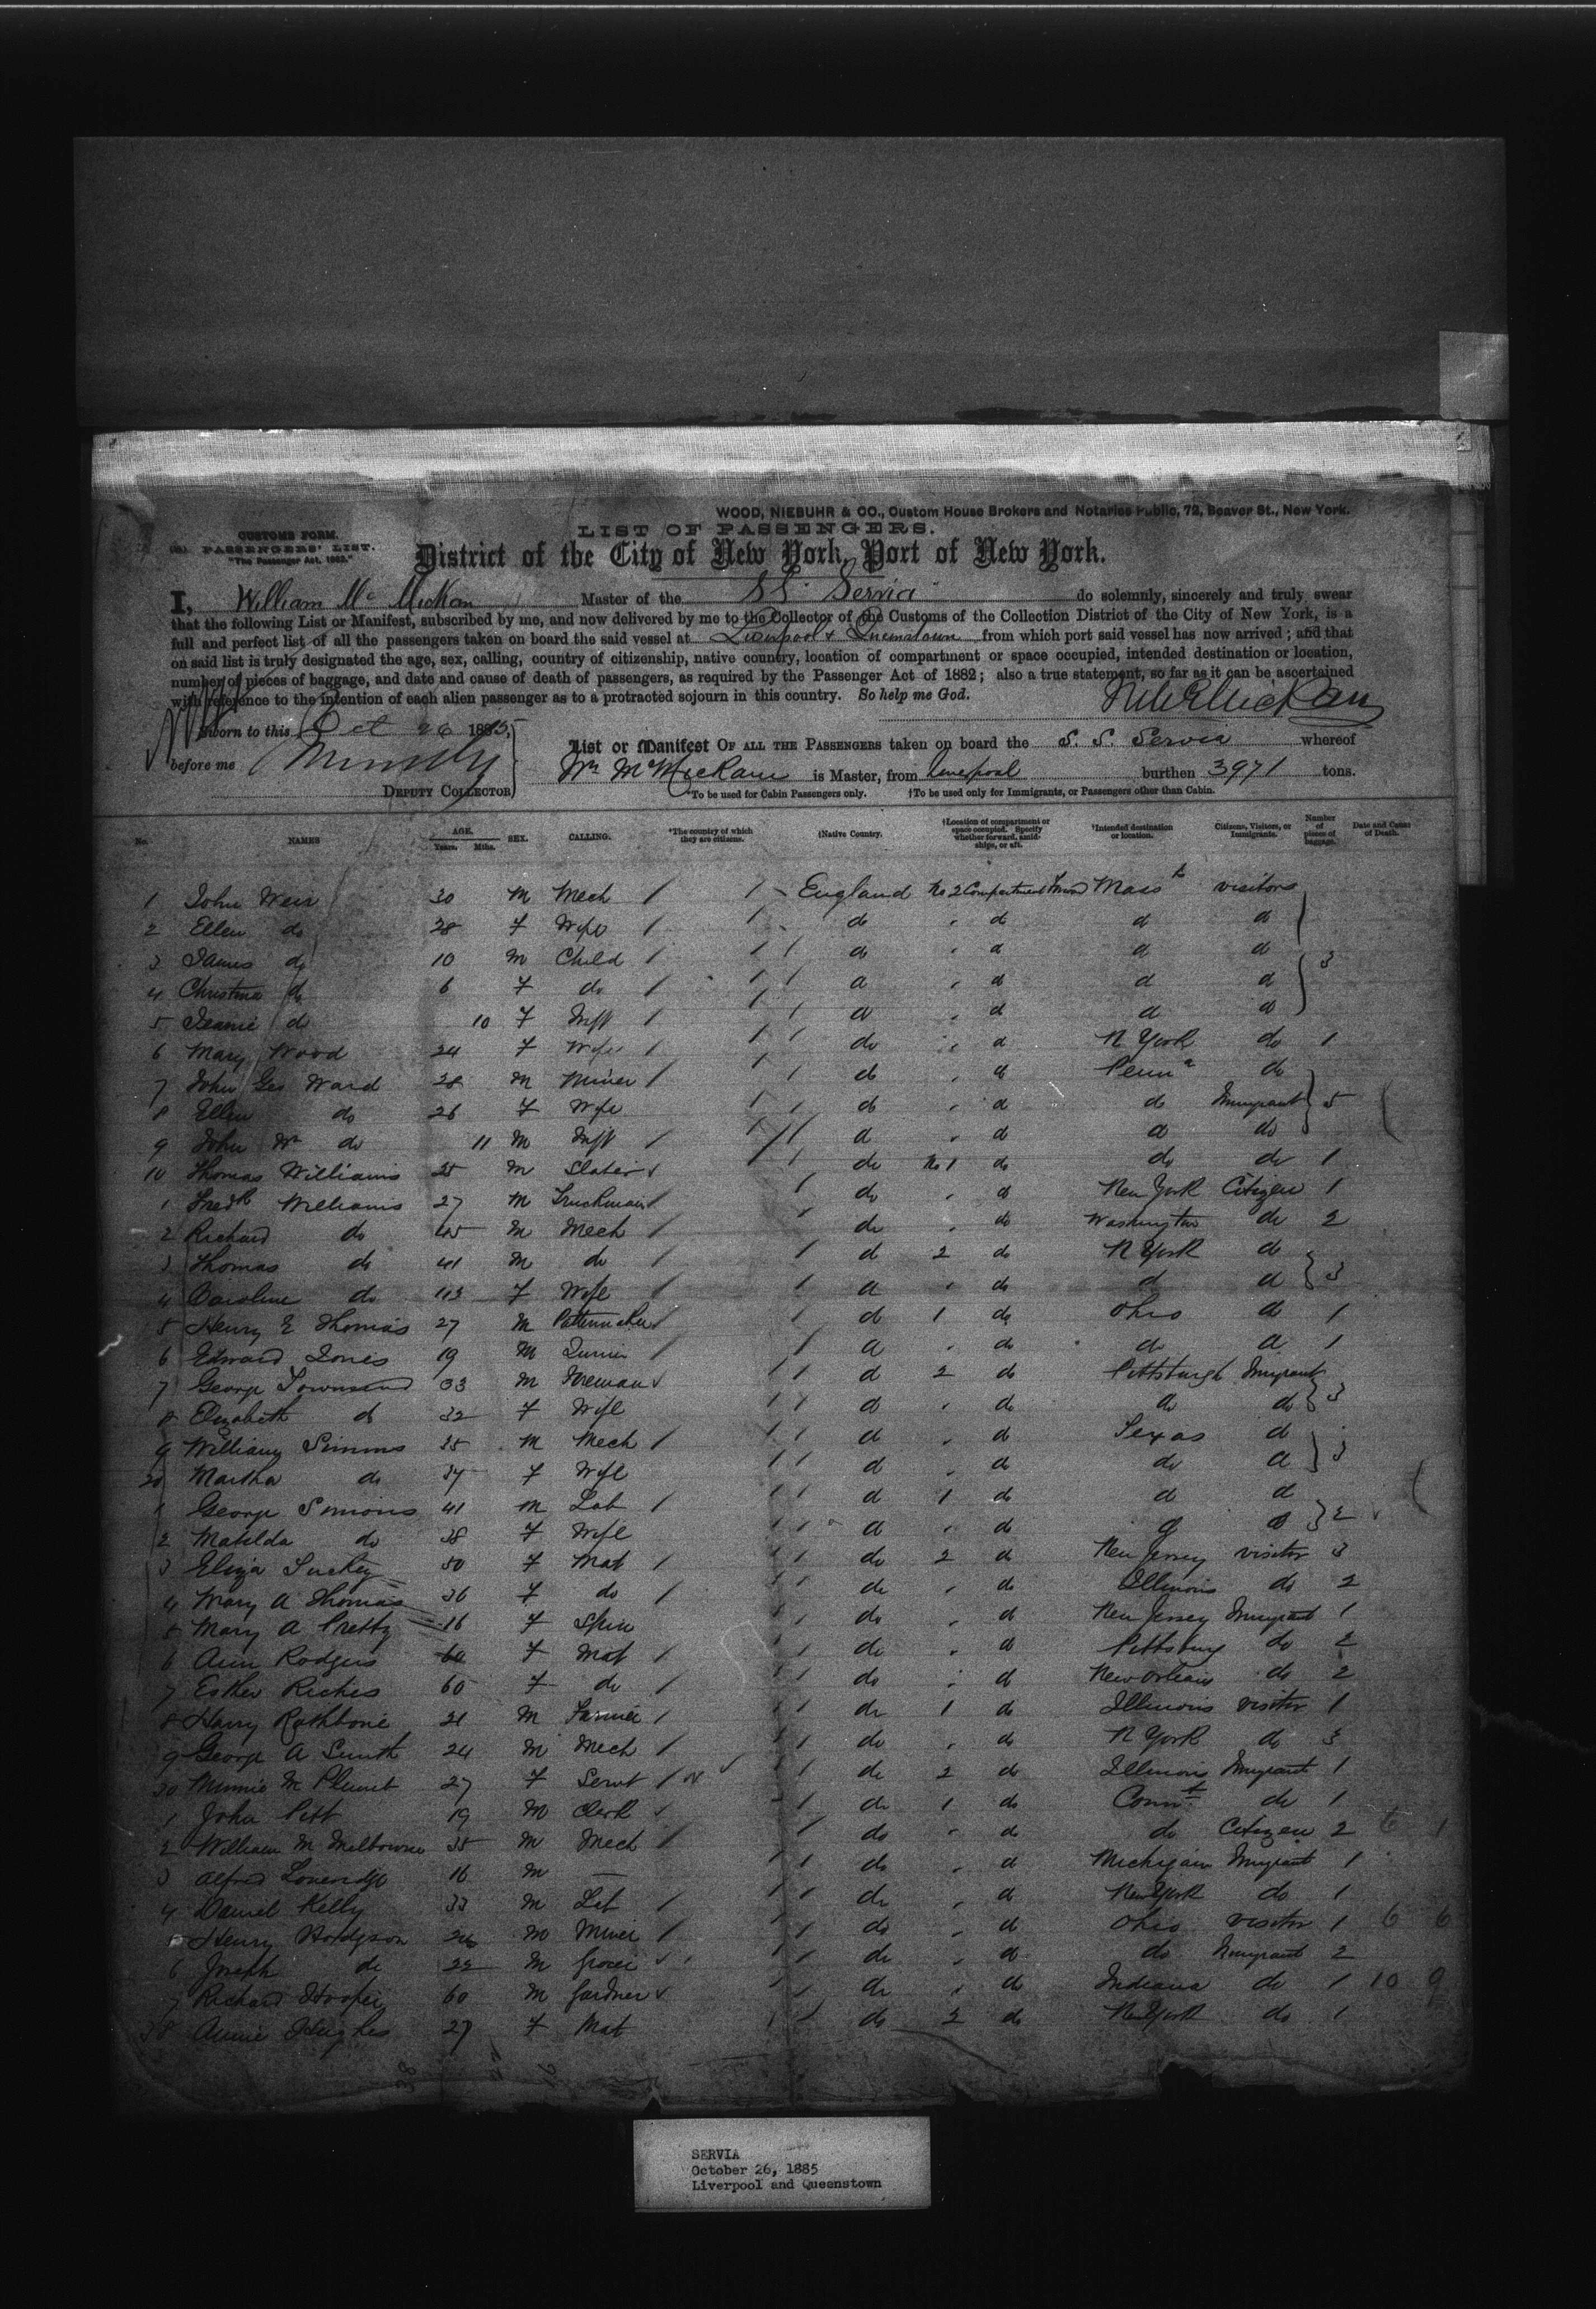 WOOD, NIEBUHR & CO., Custom House Brokers and Notaries Public, 72, Beaver St., New York.
CUSTOMS FORM.
LIST OF PASSENGERS.
PASSENGERS' LIST.
"The Passenger Act, 1882."
District of the City of New York, Port of New York.
I, William Mc Mickan Master of the SS. Servia do solemnly, sincerely and truly swear
that the following List or Manifest, subscribed by me, and now delivered by me to the Collector of the Customs of the Collection District of the City of New York, is a
full and perfect list of all the passengers taken on board the said vessel at Liverpool & Queenstown from which port said vessel has now arrived; and that
on said list is truly designated the age, sex, calling, country of citizenship, native country, location of compartment or space occupied, intended destination or location,
number of pieces of baggage, and date and cause of death of passengers, as required by the Passenger Act of 1882; also a true statement, so far as it can be ascertained
with reference to the intention of each alien passenger as to a protracted sojourn in this country. So help me God.
Sworn to this Oct 26 1885,
before me
DEPUTY COLLECTOR
List or Manifest OF ALL THE PASSENGERS taken on board the S. S. Servia whereof
Wm McMickan is Master, from Liverpool burthen 3971 tons.
*To be used for Cabin Passengers only. †To be used only for Immigrants, or Passengers other than Cabin.
No. NAMES AGE. Years. Mths. SEX. CALLING. *The country of which they are citizens. †Native Country. †Location of compartment or space occupied. Specify whether forward, amidships, or aft. †Intended destination or location. Citizens, Visitors, or Immigrants. Number of pieces of baggage. Date and Cause of Death.
1 John Weir 30 M Mech England No 2 Compartment Mass visitors
2 Ellen do 28 F Wife do do d d
3 James do 10 M Child do d d d 3
4 Christina do 6 F do d d d d
5 Jeanie do 10 F Inft d d d d
6 Mary Wood 24 F Wife do d N York do 1
7 John Geo Ward 28 M Miner do d Penna do
8 Ellen do 26 F Wife do d do Immigrant 5
9 John Wm do 11 M Inft d d d do
10 Thomas Williams 25 M Slater do No 1 do do do 1
1 Fredk Williams 27 M Truckman do d New York Citizen 1
2 Richard do 45 M Mech do do Washington do 2
3 Thomas do 41 M do d 2 do N York do
4 Caroline do 43 F Wife d do d d 3
5 Henry E Thomas 27 M Patternmaker d 1 do Ohio do 1
6 Edward Jones 19 M d do do d 1
7 George Townsend 33 M Fireman d 2 do Pittsburgh Imigrant
8 Elizabeth do 32 F Wife d do do do 3
9 William Simms 35 M Mech d d Texas d
20 Martha do 34 F Wife d do do d 3
1 George Simons 41 M Lab d 1 do d d
2 Matilda do 38 F Wife d do d d 2
3 Eliza 50 F Mat do 2 do New Jersey visitor 3
4 Mary A Thomas 36 F do do do Illinois do 2
5 Mary A Pretty 16 F Spin do d New Jersey Imigrant 1
6 Ann Rodgers 60 F Mat do d Pittsburg do 2
7 Esther Riches 60 F do do d New Orleans do 2
8 Harry Rathbone 21 M Farmer do 1 do Illinois visitor 1
9 George A Smith 24 M Mech do do N York do 3
30 Minnie M 27 F Servt do 2 do Illinois Imigrant 1
1 John Pitt 19 M Clerk do 1 do Connt do 1
2 William M Melbourne 35 M Mech do do do Citizen 2 6 1
3 Alfred Loveridge 16 M — do d Michigan Imigrant 1
4 Daniel Kelly 33 M Lab do d New York do 1
5 Henry Hodgson 26 M Miner do d Ohio visitor 1 6 6
6 Joseph do 22 M Grocer do d do Imigrant 2
7 Richard Hooper 60 M Gardner do do Indiana do 1 10 9
38 Annie Hughes 27 F Mat do 2 do New York do 1
38
SERVIA
October 26, 1885
Liverpool and Queenstown